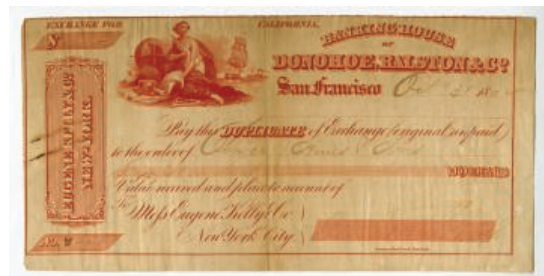 EXCHANGE FOR
CALIFORNIA.
$
BANKING HOUSE
OF
DONOHOE, RALSTON & Co
San Francisco Oct 186
Pay this DUPLICATE of Exchange (original unpaid)
to the order of
DOLLARS
Value received and place to account of
To Mess Eugene Kelly & Co.
New York City.
EUGENE KELLY & Co
NEW-YORK.
No.